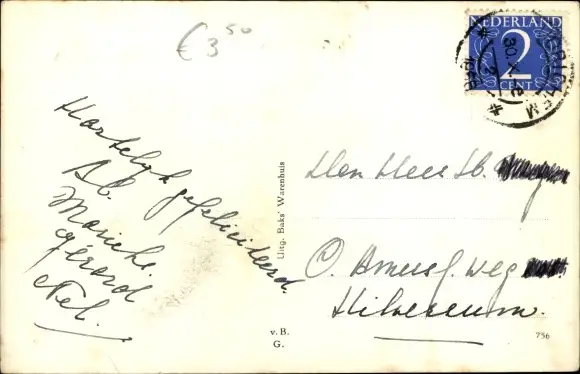 € 3 50
NEDERLAND
2
CENT
Hartelijk gefeliciteerd.
Ab.
Marieke.
Gérard
Nel.
Uitg. Baks' Warenhuis
Den Heer H.
O. Amersf. weg
Hilversum.
v. B.
G.
756